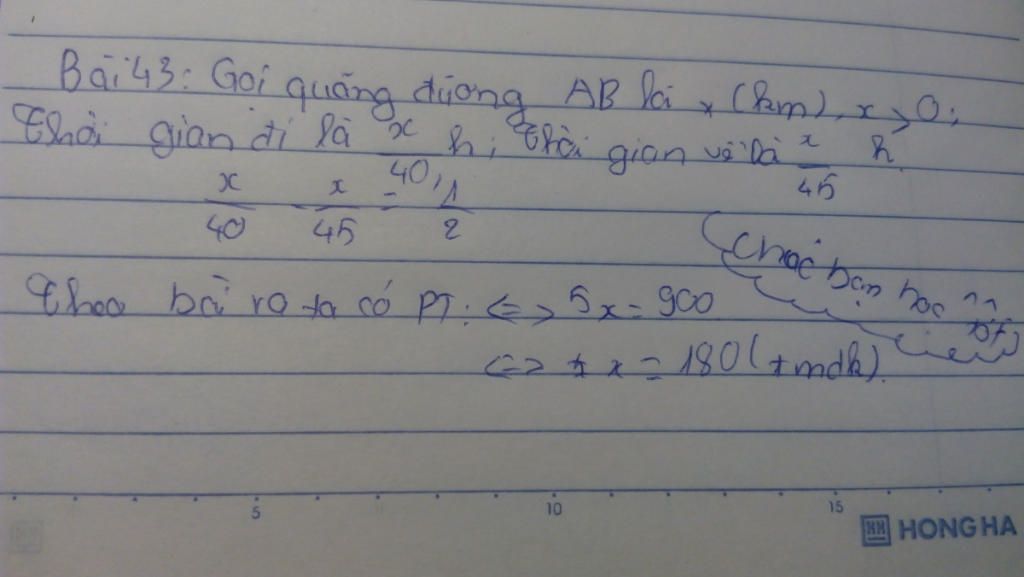 Bài 43: Gọi quãng đường AB là x (km), x > 0;
Thời gian đi là x/40 h; Thời gian về là x/45 h
x/40 - x/45 = 1/2
Theo bài ra ta có PT: <=> 5x = 900
Chúc bạn học tốt
<=> x = 180 (tmdk).
5 10 15
HONG HA